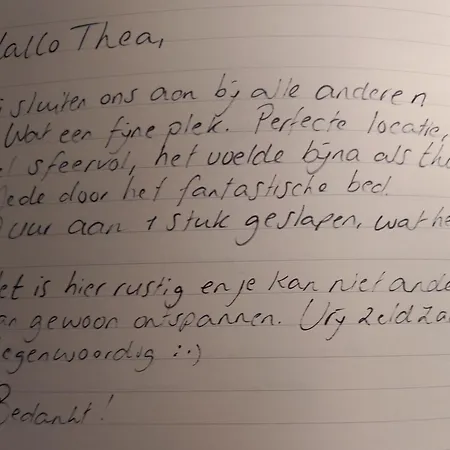 Hallo Thea,
sluiten ons aan bij alle anderen
Wat een fijne plek. Perfecte locatie,
sfeervol, het voelde bijna als
Mede door het fantastische bed.
uur aan 1 stuk geslapen, wat
Het is hier rustig en je kan niet
gewoon ontspannen. Vrij
tegenwoordig :-)
Bedankt!